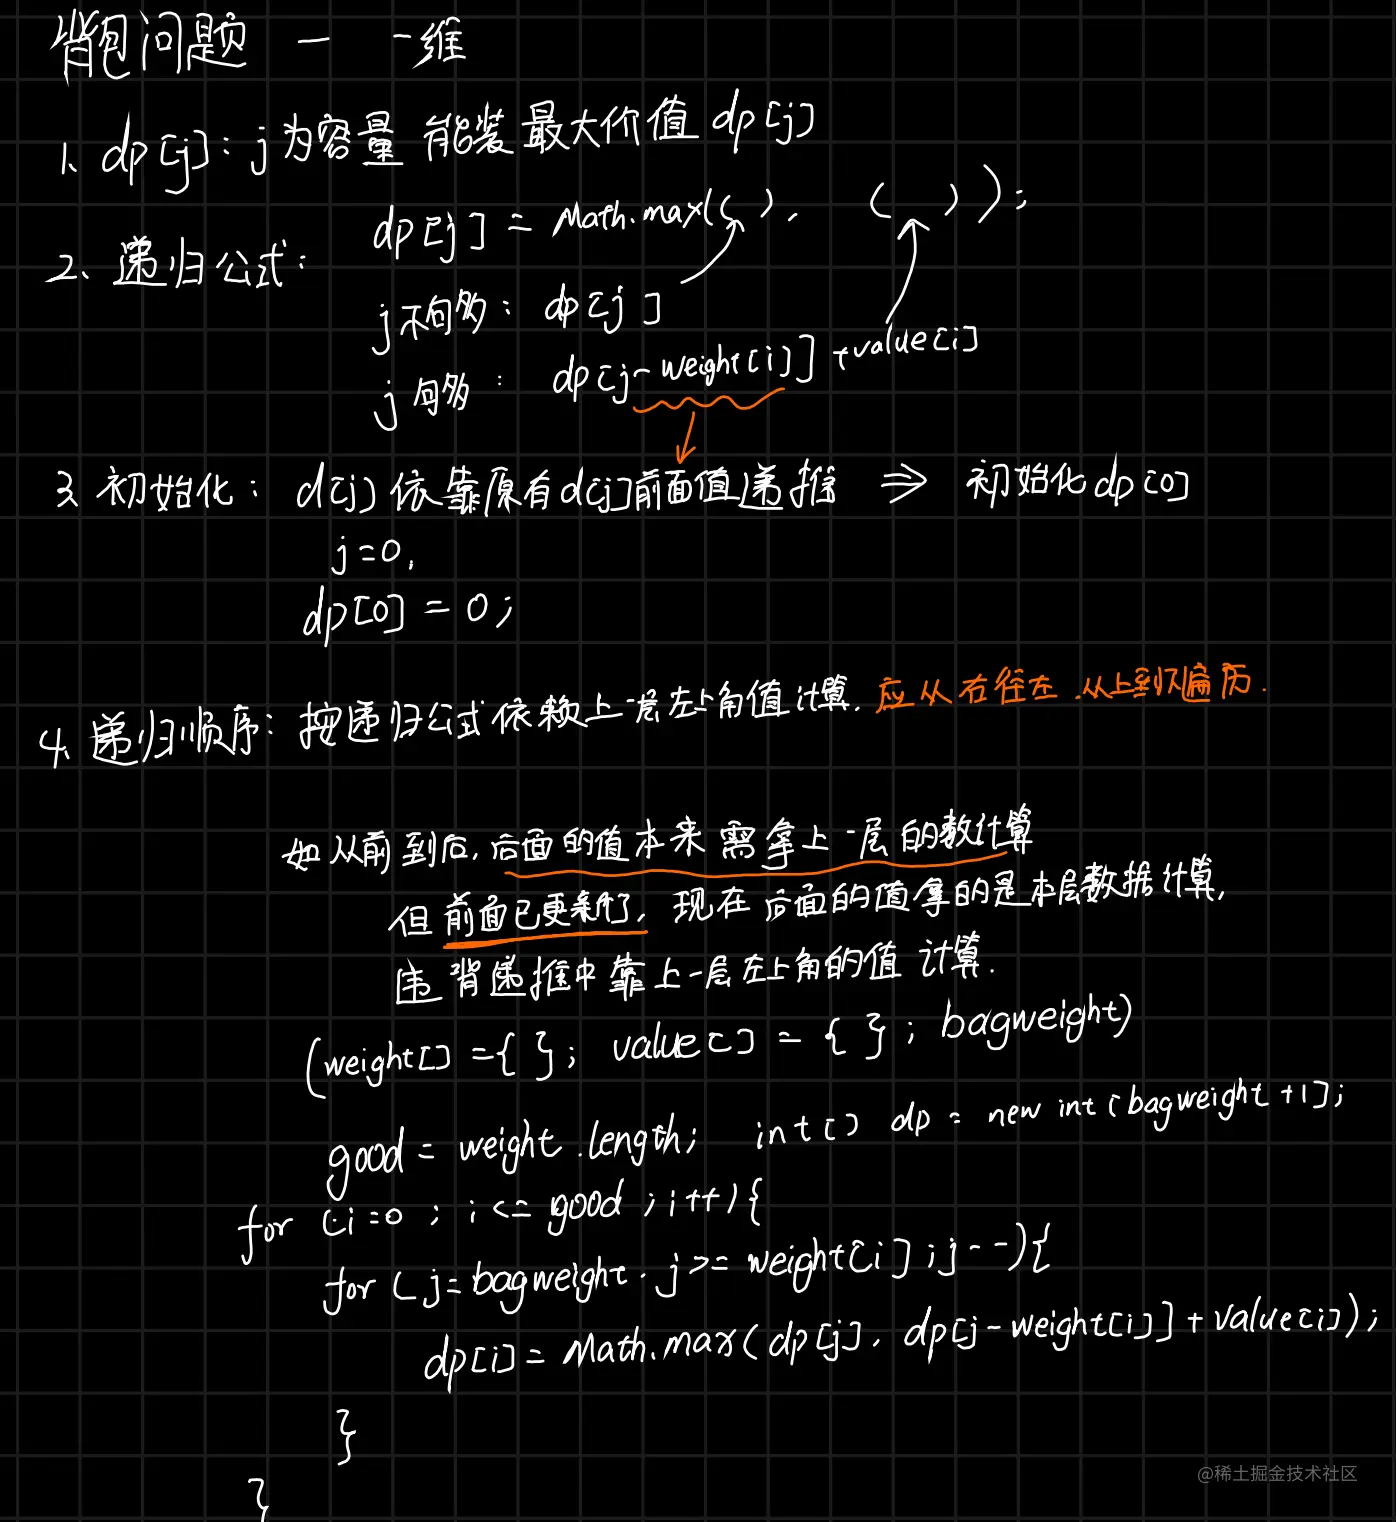 背包问题 — 一维
1、dp[j]：j为容量 能装最大价值 dp[j]
2、递归公式：
dp[j] = Math.max(( ), ( ));
j不句多：dp[j]
j句多：dp[j-weight[i]]+value[i]
3、初始化：d[j]依靠原有d[j]前面值递推 => 初始化dp[0]
j=0,
dp[0] = 0;
4、递归顺序：按递归公式依赖上一层左上角值计算, 应从右往左,从上到下遍历.
如从前到后,后面的值本来需拿上一层的数计算
但前面已更新了,现在后面的值拿的是本层数据计算,
违背递推中靠上一层左上角的值计算.
(weight[] ={ }; value[] = { }; bagweight)
good = weight.length; int[] dp = new int[bagweight+1];
for (i=0; i<=good; i++){
for (j=bagweight. j>=weight[i];j--){
dp[i]=Math.max(dp[j], dp[j-weight[i]]+value[i]);
}
}
@稀土掘金技术社区